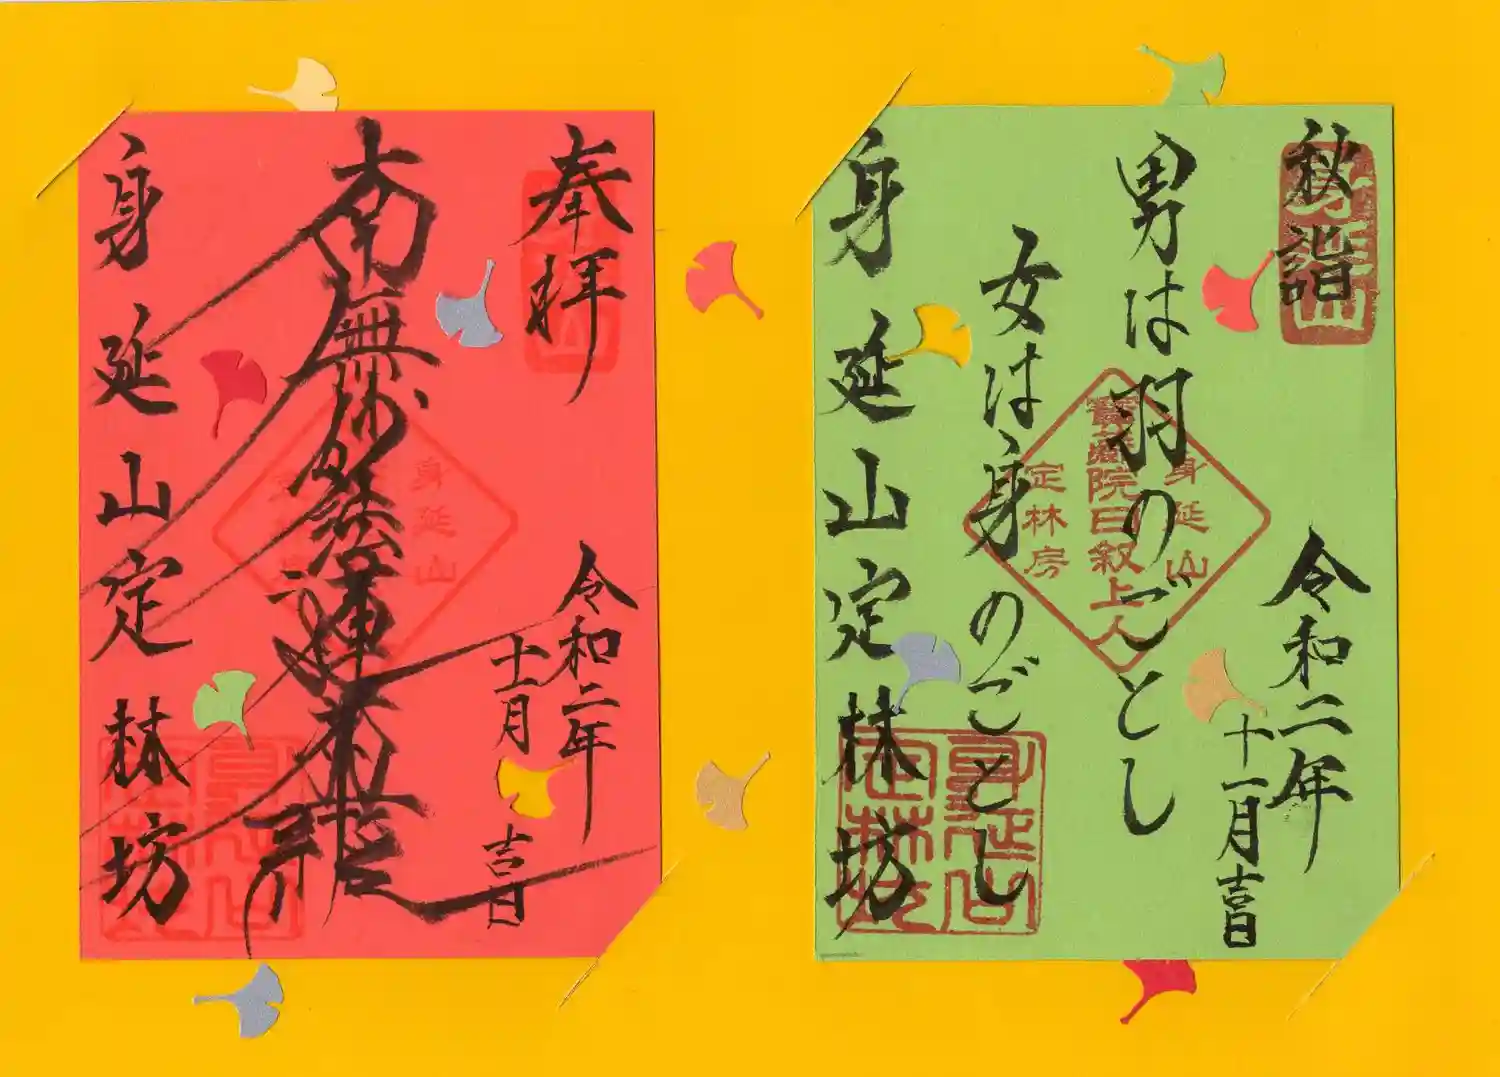 秋詣
身延山
令和二年
十一月吉日
男は羽のごとし
女は身のごとし
身延山
寶蔵院日叙上人
定林房
身延山定林坊
身延山
定林坊
奉拝
令和二年
十一月
吉日
南無妙法蓮華経
身延山
身延山定林坊